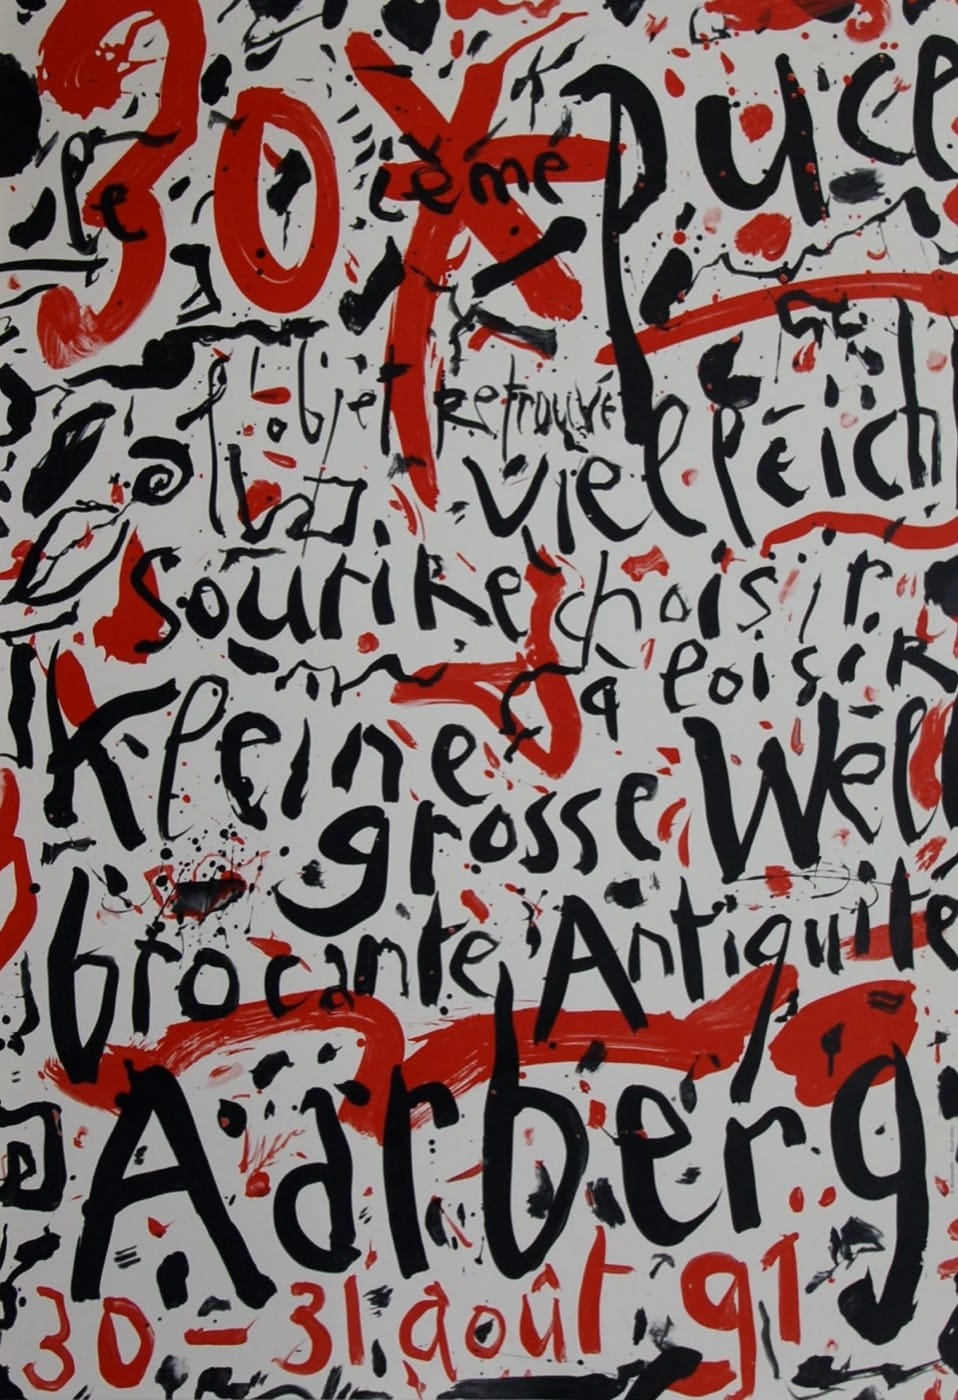 30X puce
le ième
l'objet Retrouvé
vielleich
souriRe choisir
à loisiR
Kleine
grosse Wel
brocante Antiquité
Aarberg
30 – 31 août 91